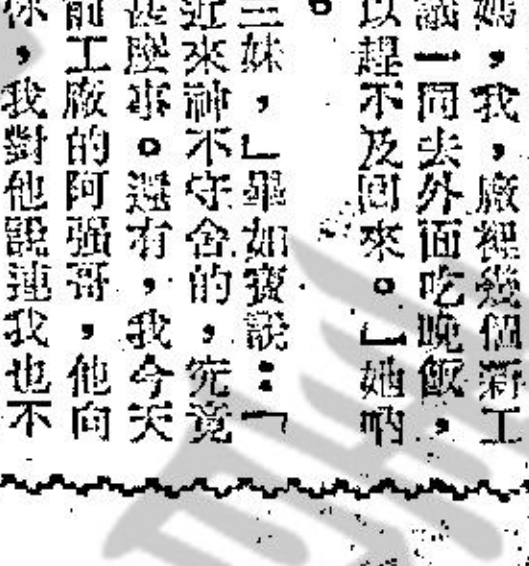 媽，我，廠裡幾個新工
議一同去外面吃晚飯，
以趕不及回來。」她吶
。
三妹，」畢如寶說：「
近來神不守舍的，究竟
甚麼事。還有，我今天
前工廠的阿強哥，他向
你，我對他說連我也不